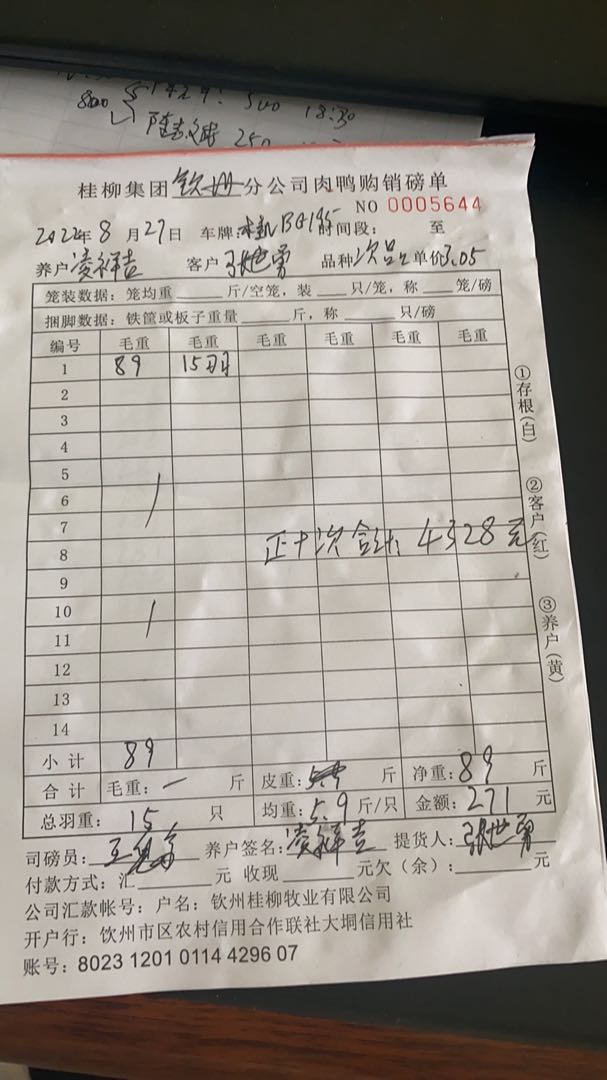 800
500 18:30
250
桂柳集团钦州分公司肉鸭购销磅单
NO 0005644
2022年8月27日 车牌: 时间段: 至
养户凌祥吉 客户张世勇 品种次品 单价3.05
笼装数据：笼均重 斤/空笼，装 只/笼，称 笼/磅
捆脚数据：铁筐或板子重量 斤，称 只/磅
编号 毛重 毛重 毛重 毛重 毛重 毛重
1 89 15羽
2
3
4
5
6
7
正+次合计: 4328元
8
9
10
11
12
13
14
小计 89
合计 毛重：一 斤 皮重： 斤 净重：89 斤
总羽重：15 只 均重：5.9 斤/只 金额：271 元
司磅员： 养户签名：凌祥吉 提货人：张世勇
付款方式：汇 元 收现 元欠（余）： 元
公司汇款帐号：户名：钦州桂柳牧业有限公司
开户行：钦州市区农村信用合作联社大垌信用社
账号：8023 1201 0114 4296 07
①存根(白)
②客户(红)
③养户(黄)